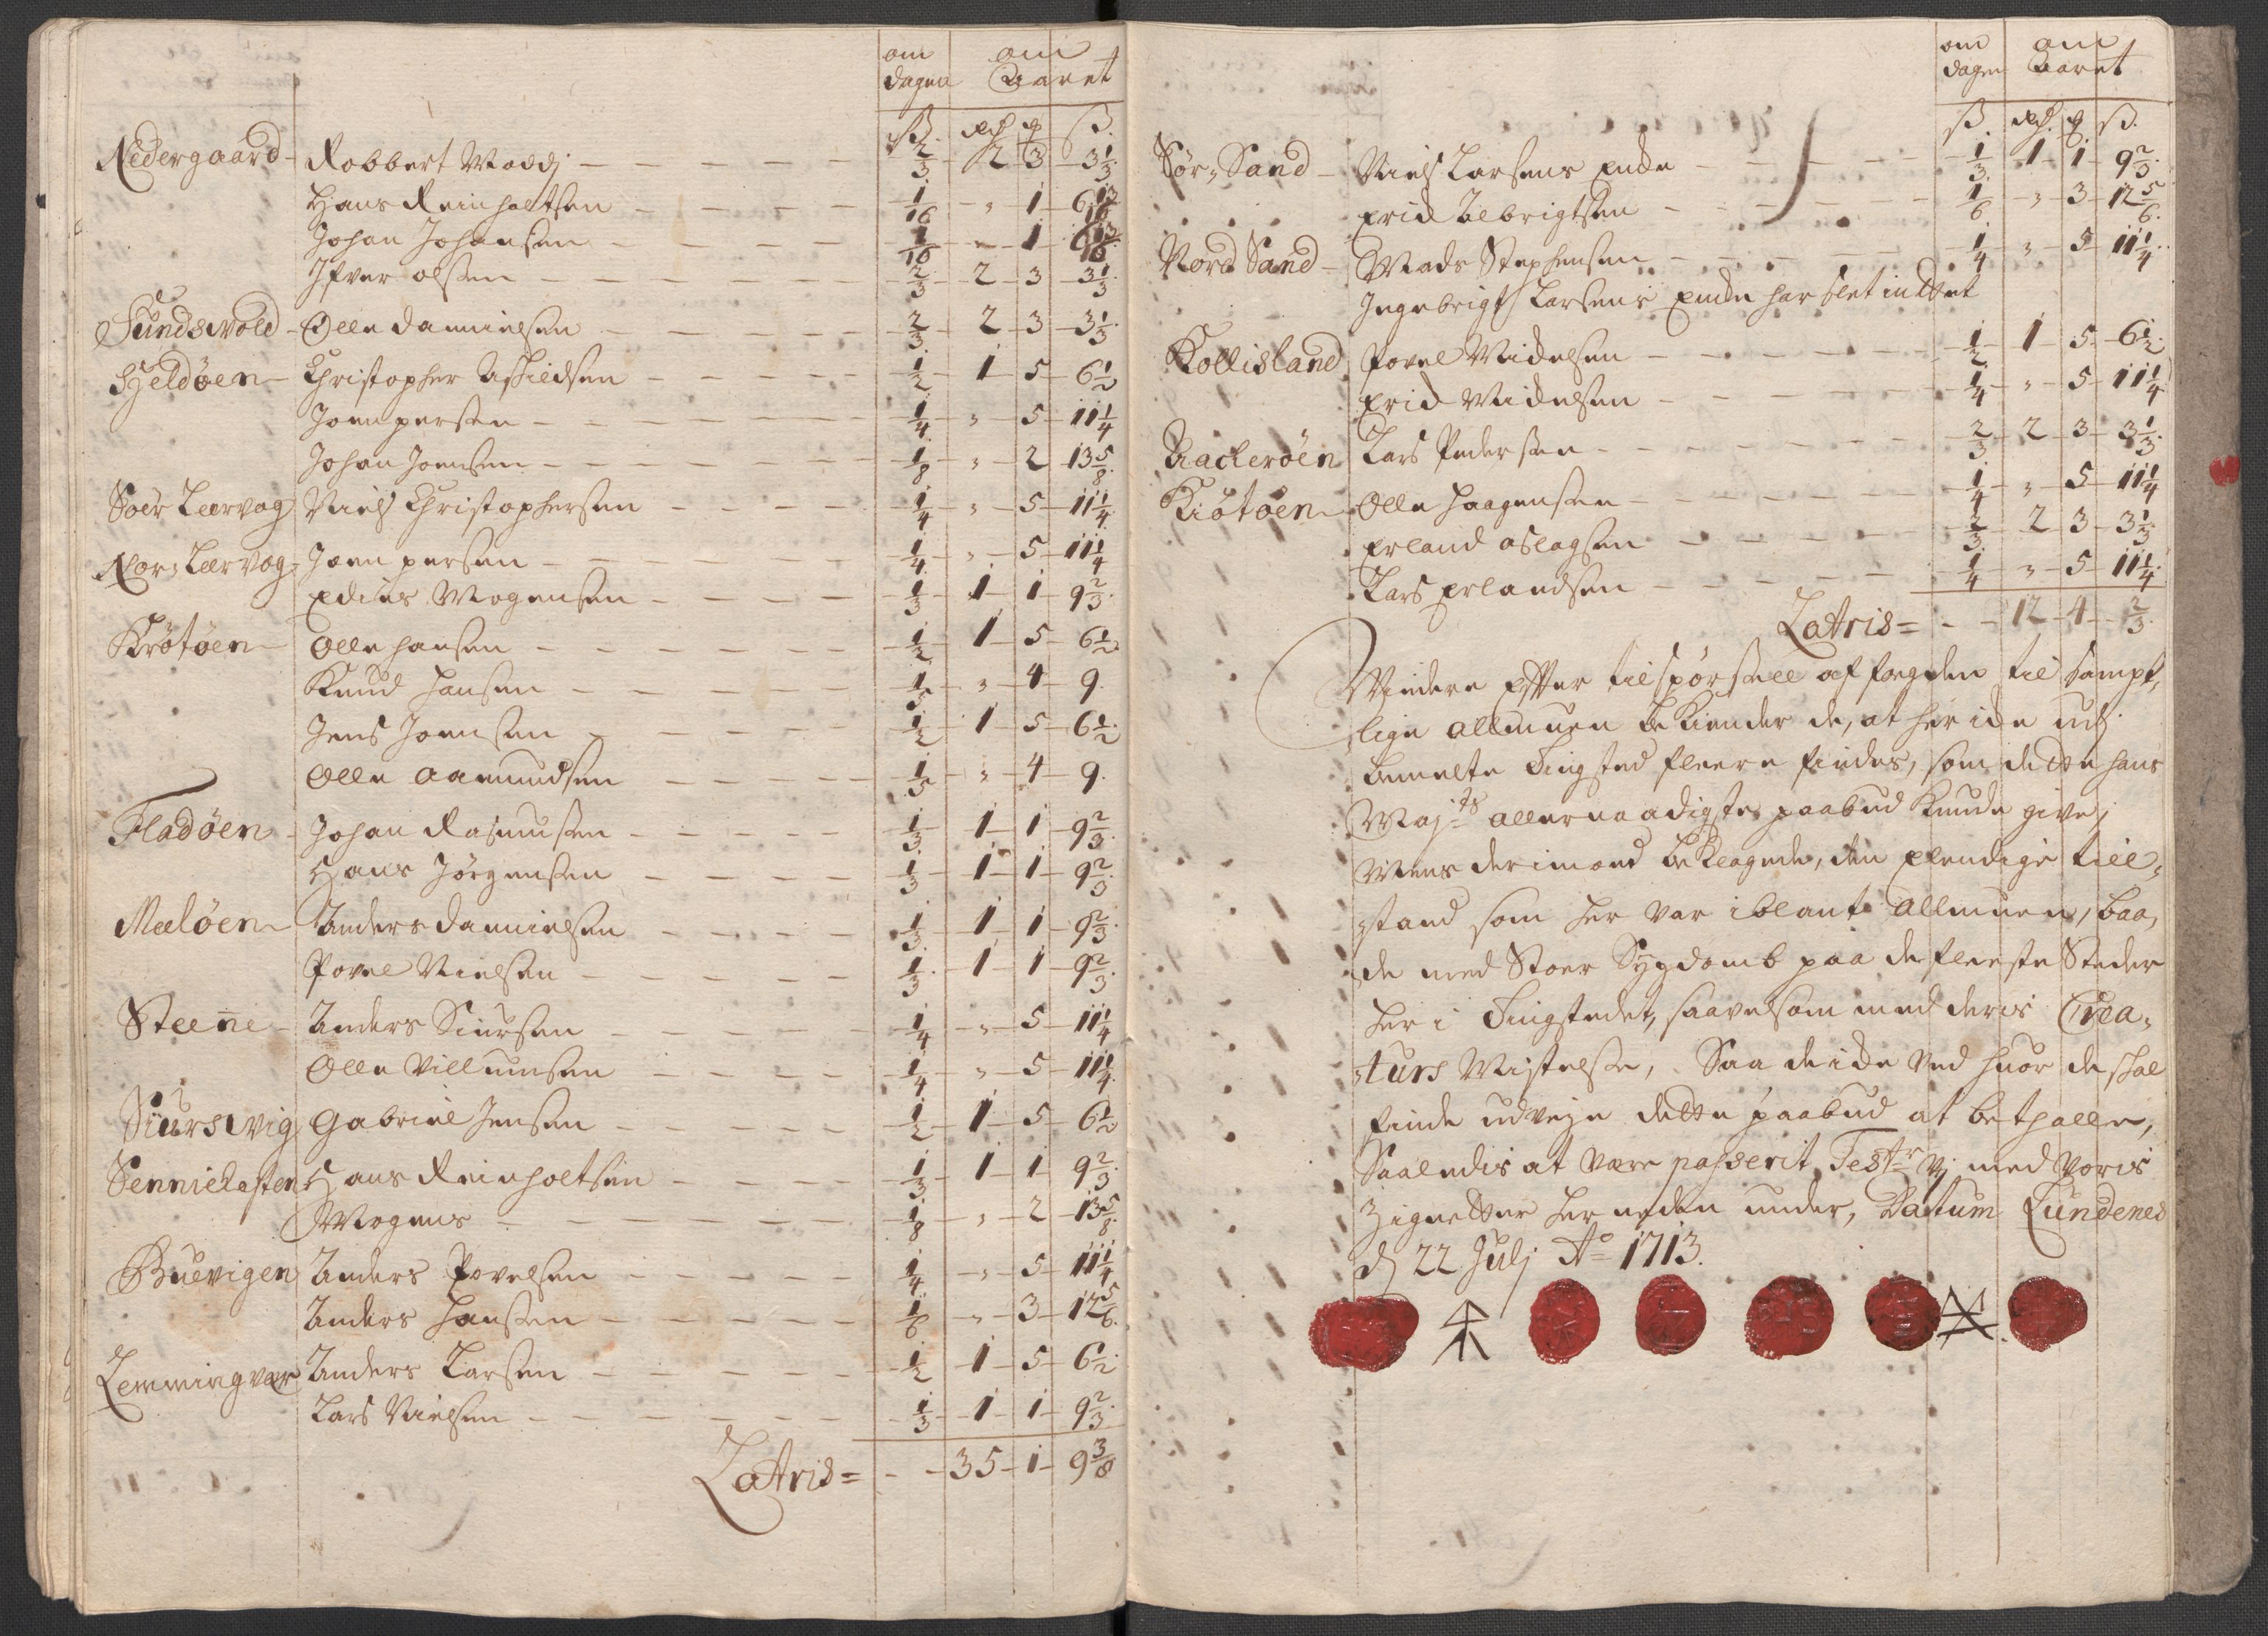 om dagen om Aaret
ß. rdr ꝗ ß.
Nedergaard - Robbert Moddj - 2/3 - 2 - 3 - 3 1/3
Hans Reinholtsen - 1/16 - „ - 1 - 6 13/16
Johan Johansen - 1/16 - „ - 1 - 6 13/16
Ifver olsen - 2/3 - 2 - 3 - 3 1/3
Sundsvold - Olle Dannielsen - 2/3 - 2 - 3 - 3 1/3
Hieldøen - Christopher - 1/2 - 1 - 5 - 6 1/2
Joen persen - 1/4 - „ - 5 - 11 1/4
Johan Joensen - 1/8 - „ - 2 - 13 5/8
Soer Leervog Niels Christophersen - 1/4 - „ - 5 - 11 1/4
Nor, Leervog, Joen persen - 1/4 - „ - 5 - 11 1/4
Mogensen - 1/3 - 1 - 1 - 9 2/3
Krøtøen - Olle hansen - 1/2 - 1 - 5 - 6 1/2
Knud Hansen - 1/5 - „ - 4 - 9.
Jens Joensen - 1/2 - 1 - 5 - 6 1/2
Olle Aamundsen - 1/5 - „ - 4 - 9.
Fladøen - Johan Rasmussen - 1/3 - 1 - 1 - 9 2/3
Hans Jørgensen - 1/3 - 1 - 1 - 9 2/3
Meeløen - Anders Dannielsen - 1/3 - 1 - 1 - 9 2/3
Povel Nielsen - 1/3 - 1 - 1 - 9 2/3
Steene - Anders Siursen - 1/4 - „ - 5 - 11 1/4
Olle Villumsen - 1/4 - „ - 5 - 11 1/4
Siursvig Gabriel Jensen - 1/2 - 1 - 5 - 6 1/2
Senniekesten Hans Reinholtsen - 1/3 - 1 - 1 - 9 2/3
Mogens - 1/8 - „ - 2 - 13 5/8
Buevigen Anders Povelsen - 1/4 - „ - 5 - 11 1/4
Anders Hansen - 1/6 - „ - 3 - 12 5/6
Lemmingvær Anders Larsen - 1/2 - 1 - 5 - 6 1/2
Lars Nielsen - 1/3 - 1 - 1 - 9 2/3
Latris = - - 35 - 1 - 9 3/8
om dagen om Aaret
ß. rdr. ꝗ. ß.
Sør, Sand - Niels Larsens Encke - 1/3 - 1 - 1 - 9 2/3
Erick Elebrigtsen - 1/6 - „ - 3 - 12 5/6
Nord Sand - Mads Stephensen - 1/4 - „ - 5 - 11 1/4
Ingebrigt Larsens Encke har slet indtet
Kollisland Povel Mickelsen - 1/2 - 1 - 5 - 6 1/2
Erick Mickelsen - 1/4 - „ - 5 - 11 1/4
Aackerøen Lars Pedersen - 2/3 - 2 - 3 - 3 1/3
Kiøtøen - Olle Haagensen - 1/4 - „ - 5 - 11 1/4
Erland aslagsen - 2/3 - 2 - 3 - 3 1/3
Lars Erlandsen - 1/4 - „ - 5 - 11 1/4
Latris = - - 12 - 4 - 2/3
Viedere Efter tilspørsell af fogden til sampt,
lige Allmuen bekiender de, at her icke udj
bemelte Tingsted fleere findes, som dette hans
Majts allernaadigste paabud kunde give,
Mens derimoed beklagede, den Elendige till,
stand som her var iblant Allmuen, baa,
de med Stoer Sygdomb paa de fleeste Steder
her i Tingstedet, saavelsom med deris Crea,
turs Mistelse, Saa de icke ved huor de skal
finde udveje dette paabud at bethalle,
Saaledis at være passerit, Testr Vj med voris
Zignetter her neden under, Datum Lundenes
d 22 Julj Ao 1713.